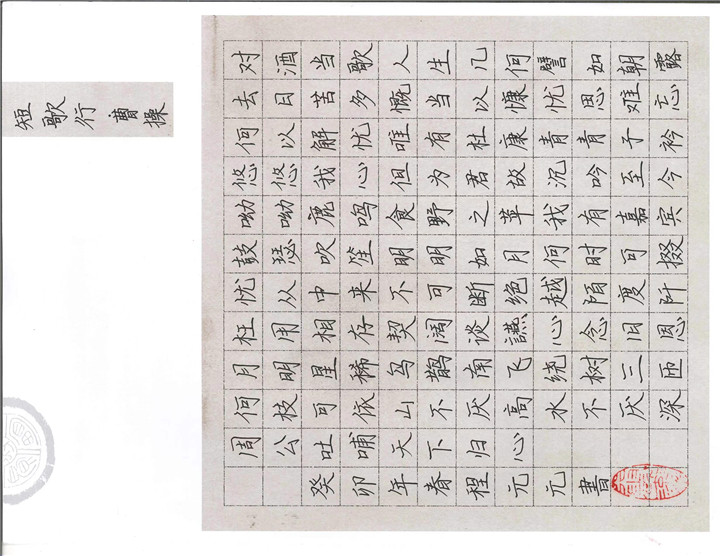 短歌行 曹操
对酒当歌人生几何譬如朝露
去日苦多慨当以慷忧思难忘
何以解忧唯有杜康青青子衿
悠悠我心但为君故沉吟至今
呦呦鹿鸣食野之苹我有嘉宾
鼓瑟吹笙明明如月何时可掇
忧从中来不可断绝越陌度阡
枉用相存契阔谈讌心念旧恩
月明星稀乌鹊南飞绕树三匝
何枝可依山不厌高水不厌深
周公吐哺天下归心
癸卯年春程元元書